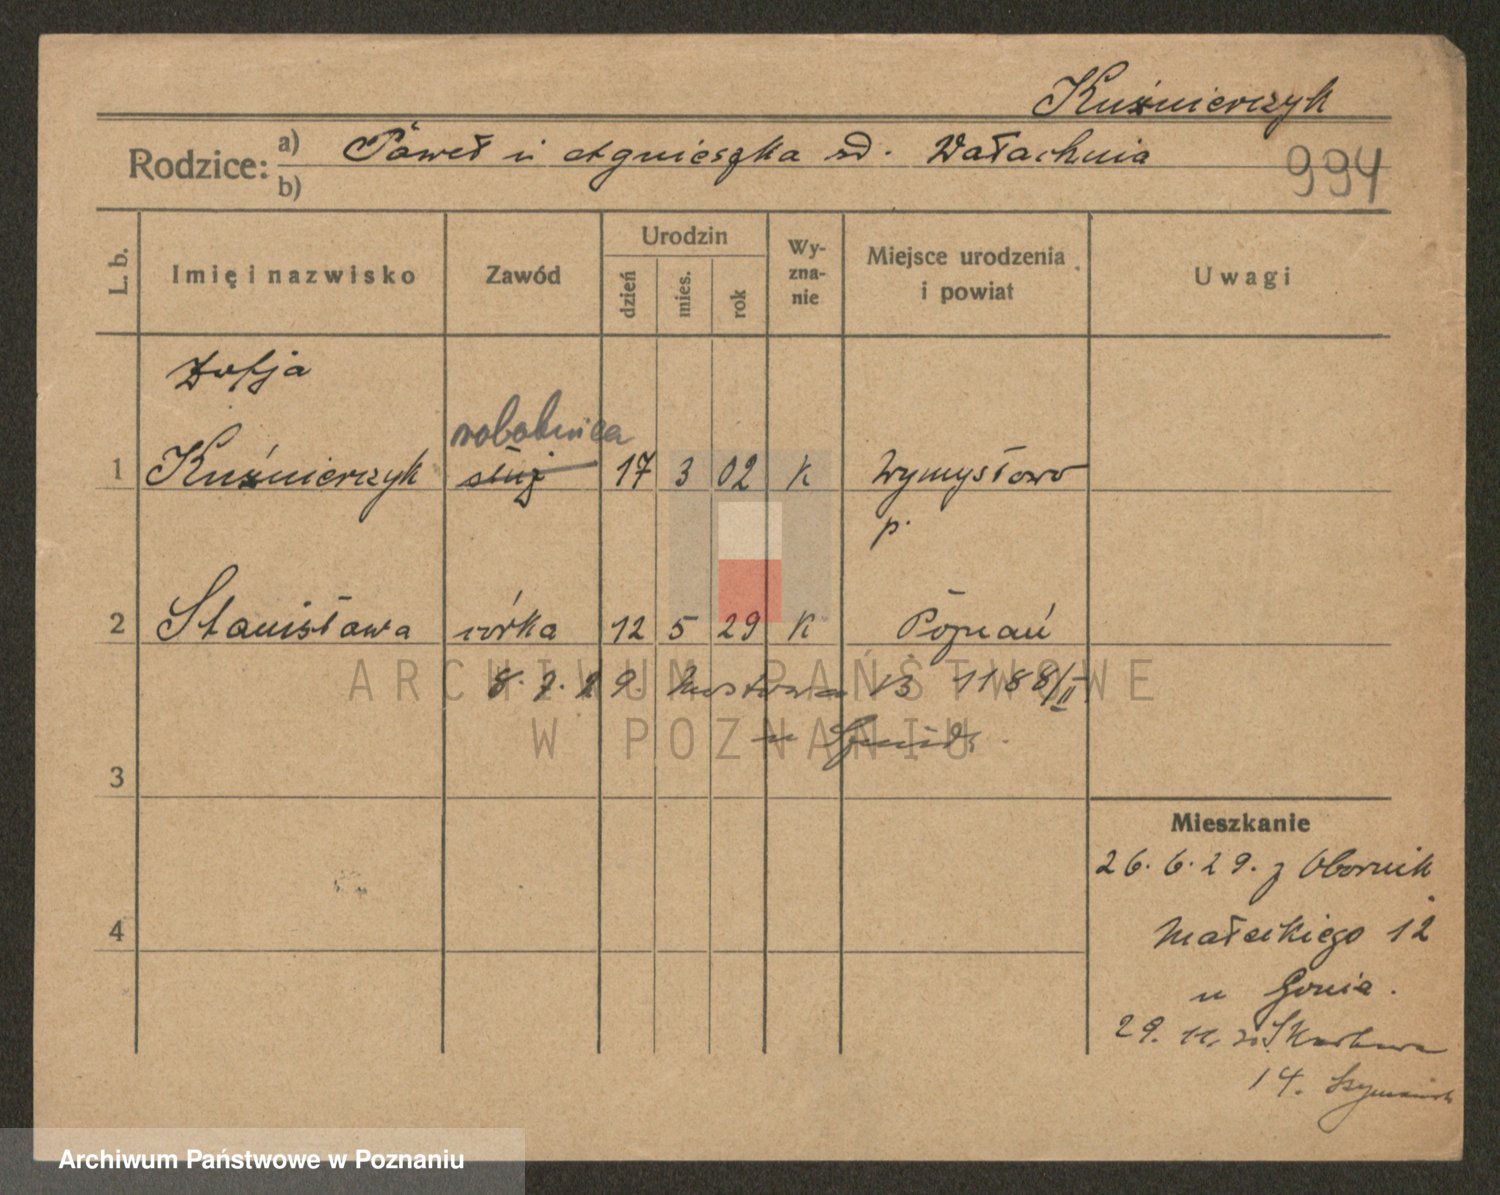 Kuźnierczyk
Rodzice: a) Paweł i Agnieszka zd. Wałachnia
b)
994
L. b.
Imię i nazwisko
Zawód
Urodzin
dzień
mies.
rok
Wy-
zna-
nie
Miejsce urodzenia
i powiat
Uwagi
Zofja
robotnica
1 Kuźnierczyk służ 17 3 02 K Wymysłowo
p.
2 Stanisława córka 12 5 29 K Poznań
8. 7. 29. 13 1188/II
u
3
Mieszkanie
26. 6. 29. z Obornik
4
Małeckiego 12
u Gonia.
29. 11.
14.
ARCHIWUM PAŃSTWOWE
W POZNANIU
Archiwum Państwowe w Poznaniu